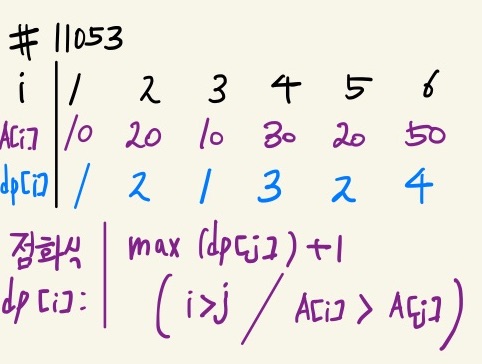 # 11053
i 1 2 3 4 5 6
A[i] 10 20 10 30 20 50
dp[i] 1 2 1 3 2 4
점화식 max (dp[j]) + 1
dp[i]: (i>j / A[i] > A[j])